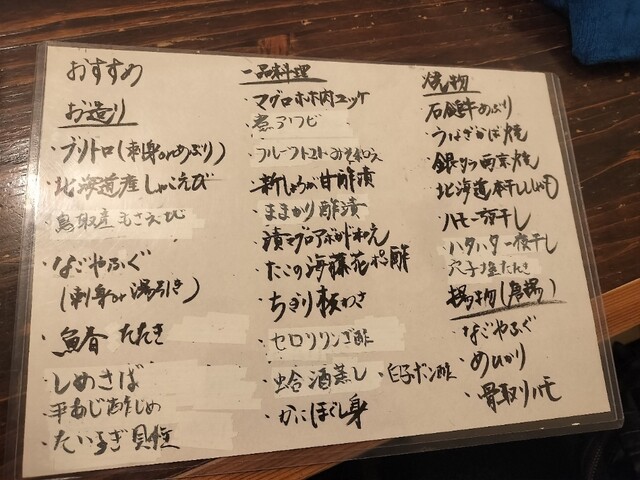 おすすめ
お造り
・ブリトロ(刺身orあぶり)
・北海道産しゃこえび
・鳥取産もさえび
・なごやふぐ
(刺身or湯引き)
・魚香たたき
・しめさば
・平あじ酢じめ
・たいらぎ貝柱
一品料理
・マグロホホ肉ユッケ
・煮アワビ
・フルーツトマトみそ和え
・新しょうが甘酢漬
・ままかり酢漬
漬マグロアボカド和え
・たこの海藤花ポン酢
・ちぎり板わさ
・セロリリンゴ酢
・蛤酒蒸し ・白子ポン酢
・かにほぐし身
焼物
・石鎚牛あぶり
・うなぎかば焼
・銀ダラ西京焼
・北海道本ししゃも
・ハモ一夜干し
・ハタハタ一夜干し
・穴子塩たたき
揚物(唐揚)
・なごやふぐ
・めひかり
・骨取りハモ